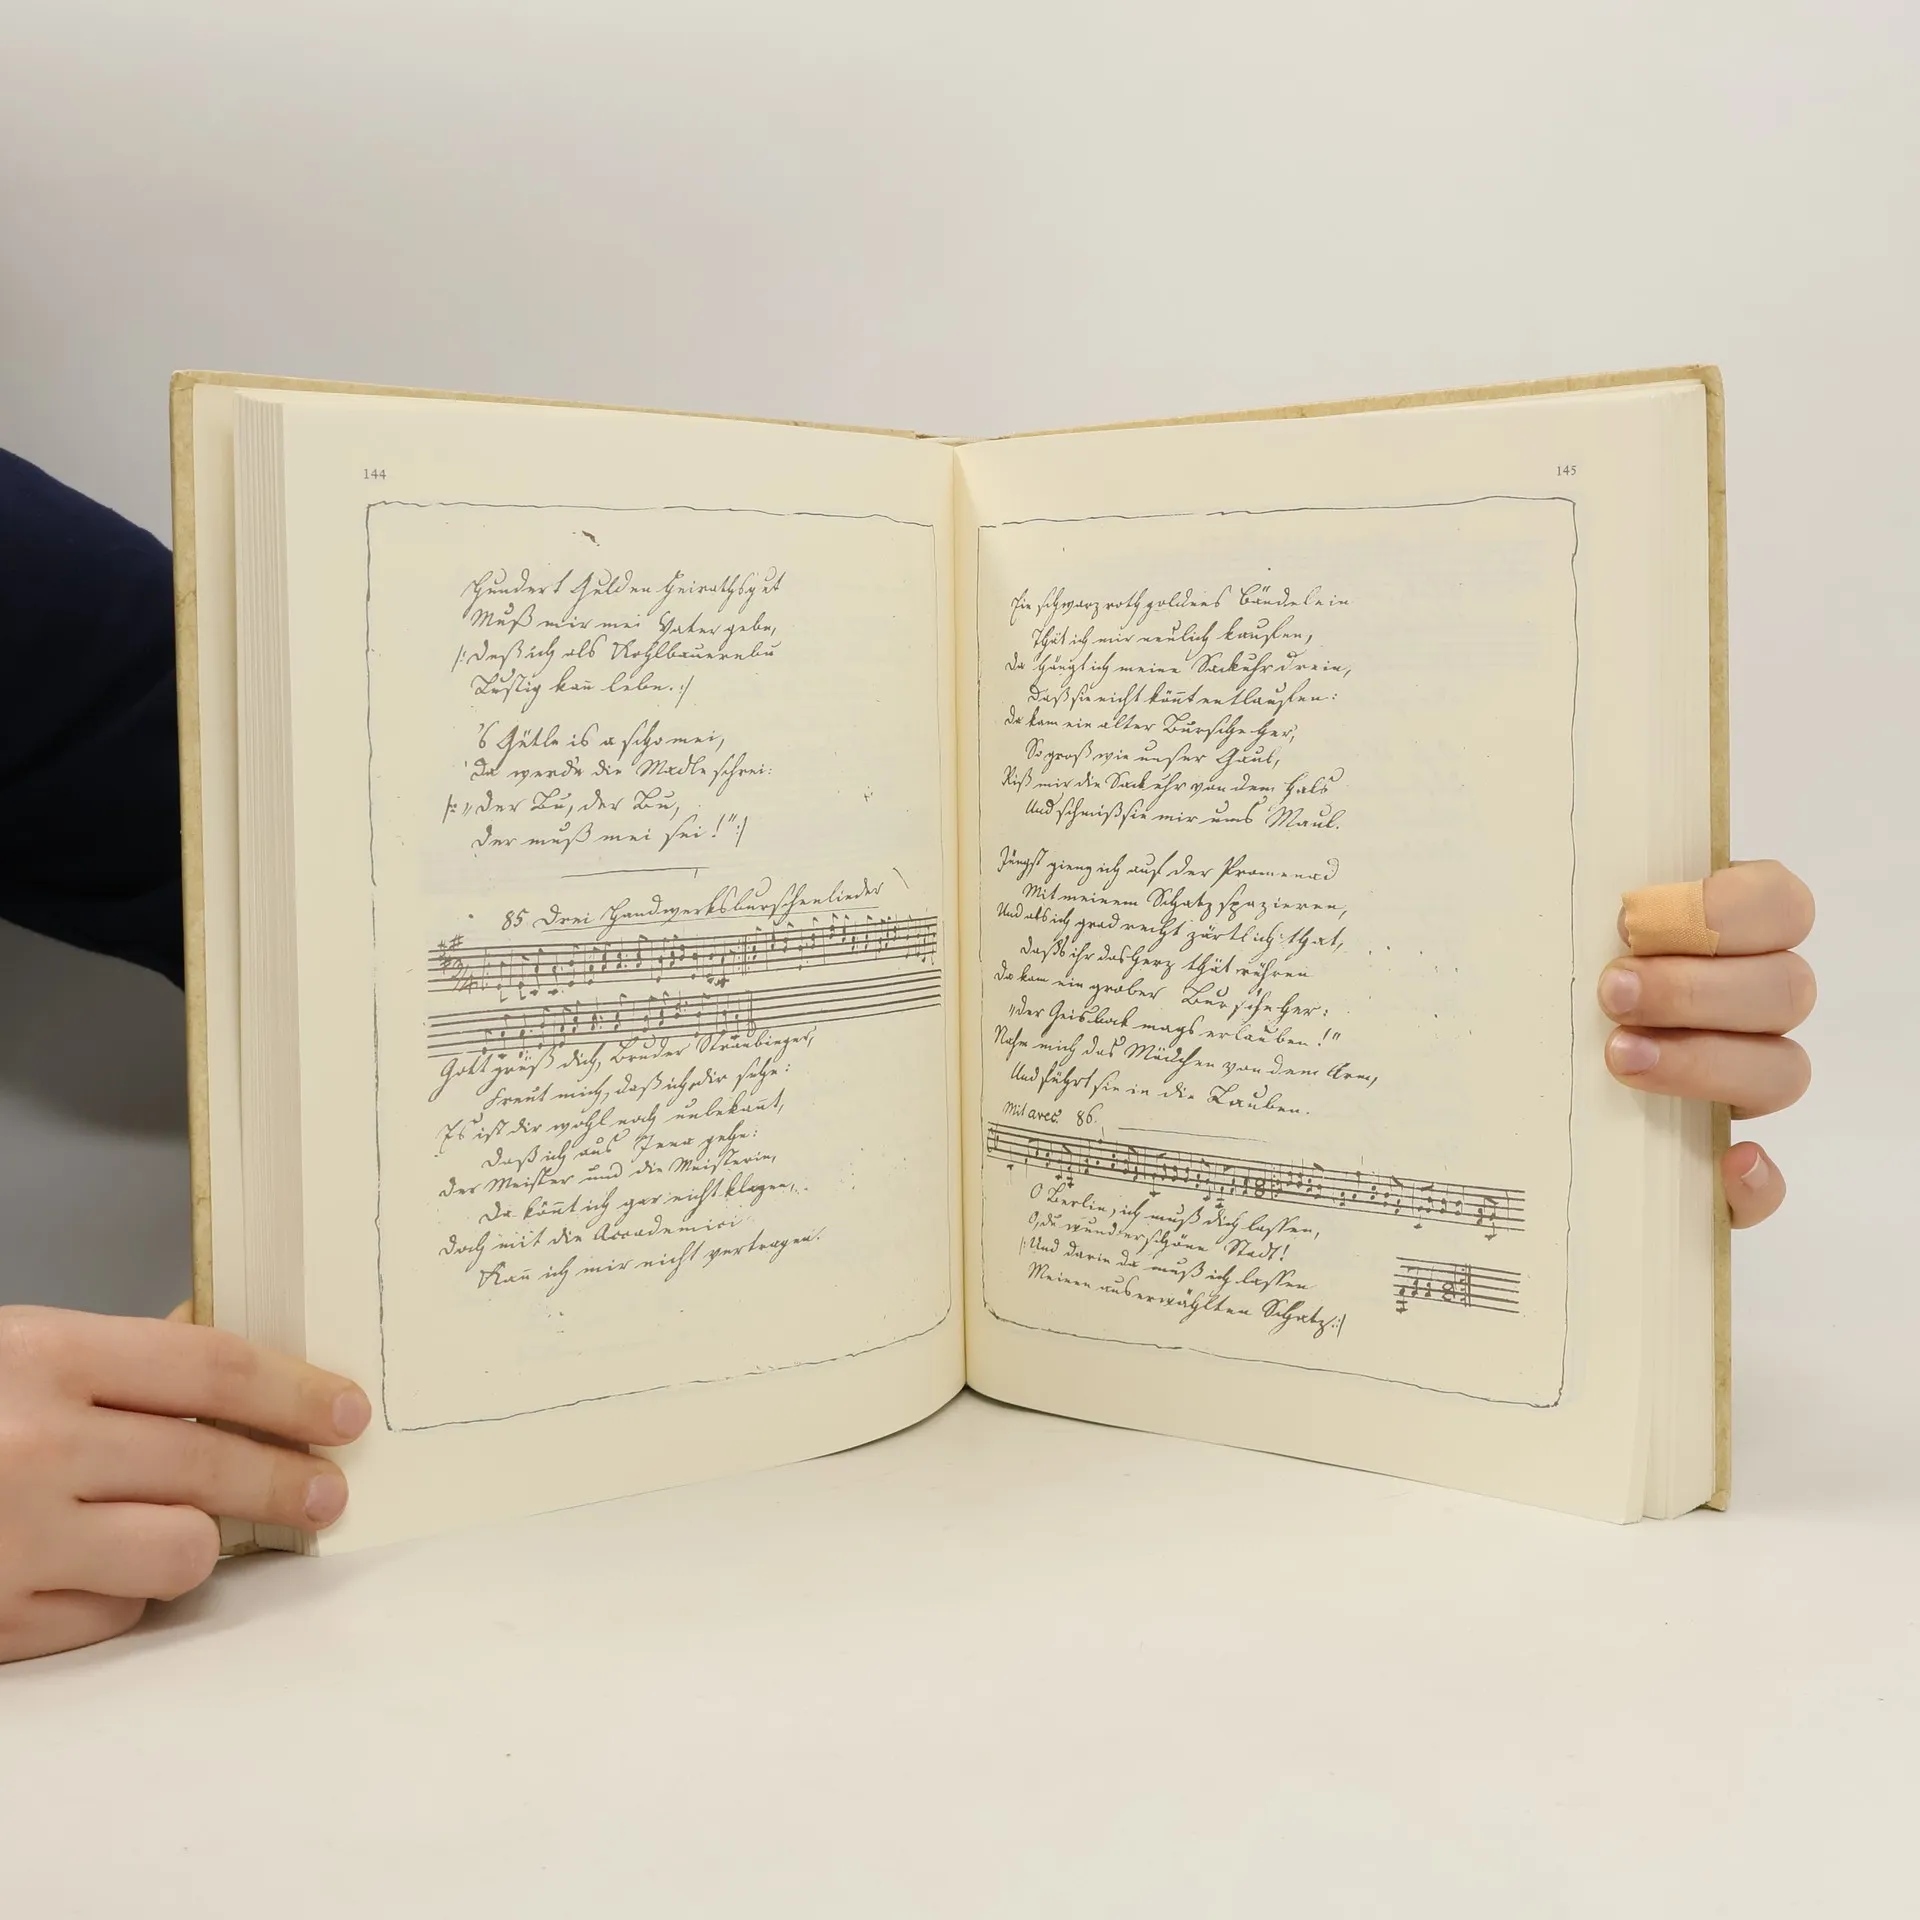 144
Hundert Gulden Heirathsgut
Muß mir mei Vater gebe,
|: Daß ich als Kohlbauernbu
Lustig kan̄ lebe. :|
's Gütle is a scho mei,
Da werde die Madle schrei:
|: „Der Bu, der Bu,
Der muß mei sei!" :|
85 Drei Handwerksburschenlieder
Gott grüß dich, Bruder Straubinger,
Freut mich, daß ich dir sehe:
Es ist dir wohl noch unbekan̄t,
Daß ich aus Jena gehe:
Der Meister und die Meisterin,
Da kön̄t ich gar nicht klagen,
Doch mit die Accademici
Kan̄ ich mir nicht vertragen.
145
Ein schwarz roth goldnes Bändelein
Thät ich mir neulich kaufen,
Da hängt ich meine Sackuhr drein,
Daß sie nicht kön̄t entlaufen:
Da kam ein alter Bursche her,
So groß wie unser Gaul,
Riß mir die Sackuhr von dem Hals
Und schmiß sie mir ums Maul.
Jüngst gieng ich auf der Promenad
Mit meinem Schatz spazieren,
Und als ich grad recht zärtlich that,
Daß ihr das Herz thät rühren
Da kam ein grober Bursche her:
„Der Geisbock mags erlauben!"
Nahm mich das Mädchen von dem Arm,
Und führt sie in die Lauben.
86.
O Berlin, ich muß dich lassen,
O, du wunderschöne Stadt!
|: Und darin da muß ich lassen
Meinen auserwählten Schatz. :|